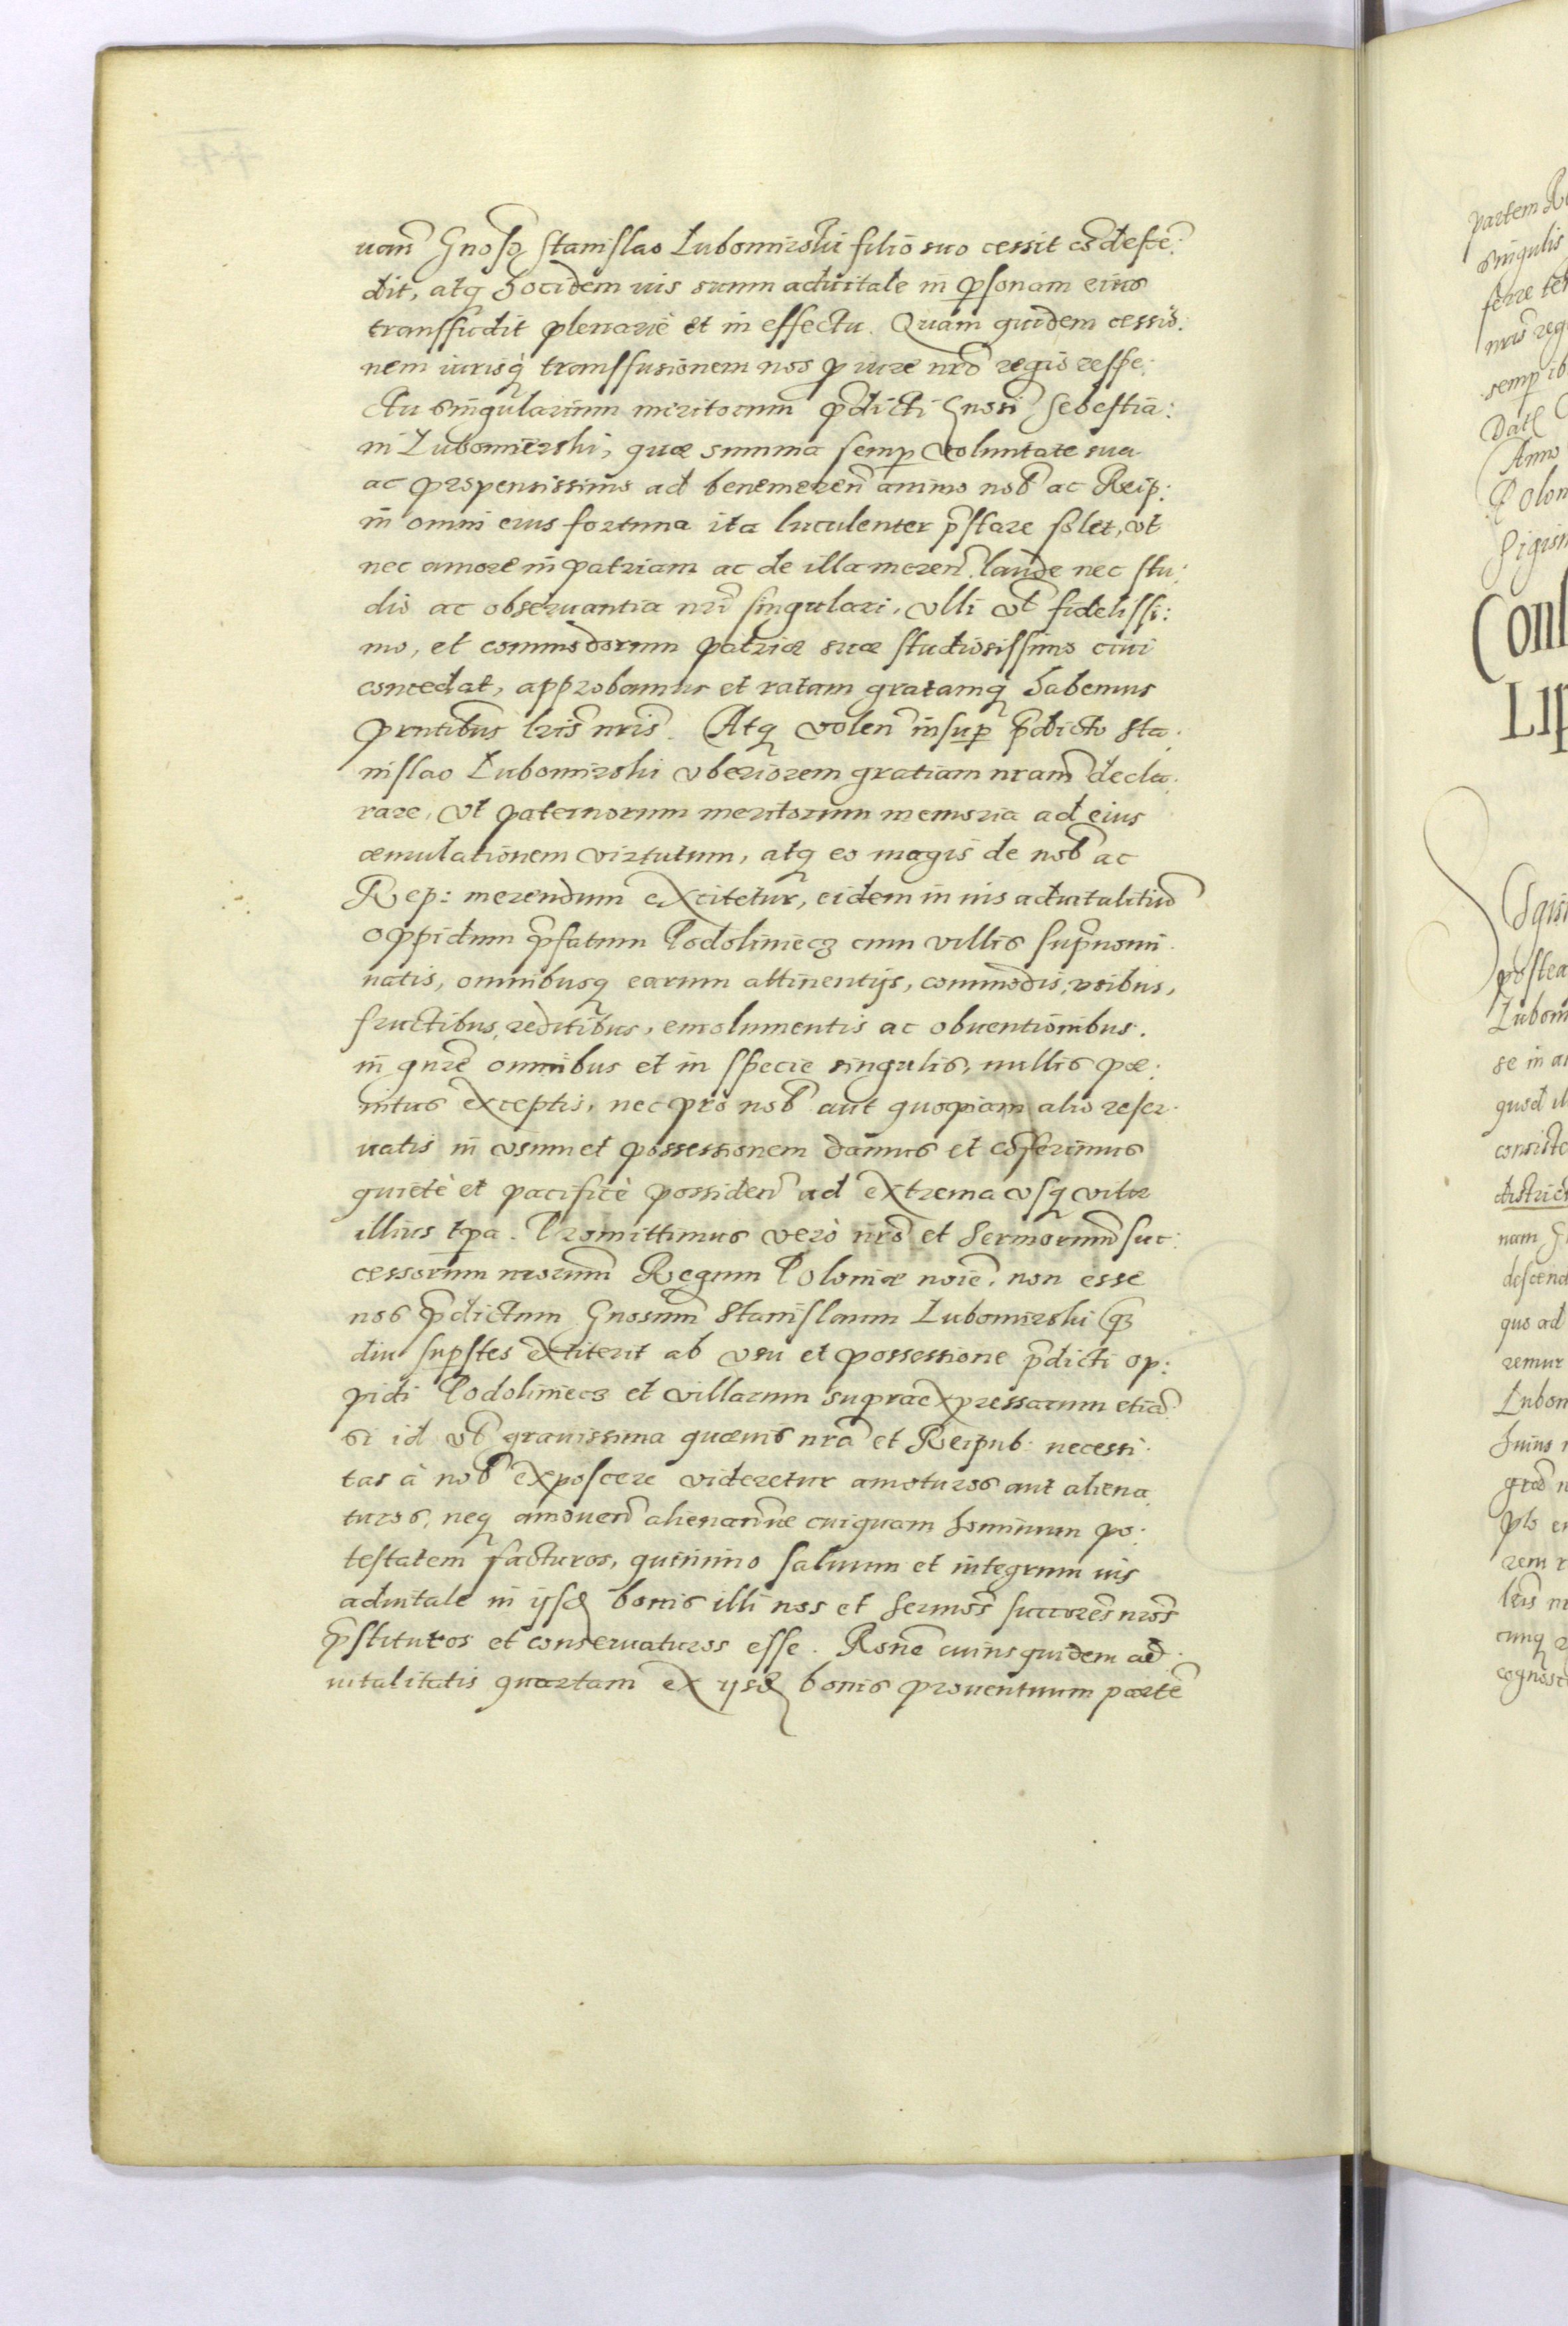 uam Gnoso Stanislao Lubomirski filio suo cessit cōdescē:
dit, atq hocidem ius suum aduitale in psonam eius
transfudit plenariè et in effectu. Quam quidem cessio:
nem iurisq transfusionem nos p iure nrō regio respe:
ctu singularium meritorum pdicti Gnosi Sebastia:
ni Lubomierski, quæ summa semp voluntate sua
ac propensissimo ad benemeren animo nob ac Reip:
in omni eius fortuna ita luculenter pstare solet, vt
nec amore in patriam ac de illa meren laude nec stu:
dio ac obseruantia nri singulari, vlli vt fidelissi:
mo, et commodorum patriæ suæ studiosissimo ciui
concedat, approbamus et ratam gratamq habemus
pntibus lris nris. Atq volen insup pdicto Sta:
nislao Lubomirski vberiorem gratiam nram decla:
rare, vt paternorum meritorum memoria ad eius
æmulationem virtutum, atq eo magis de nob ac
Rep: merendum excitetur, eidem in ius aduitalitiu
oppidum pfatum Podoliniecz cum villis supnomi:
natis, omnibusq earum attinentijs, commodis, vsibus,
fructibus, reditibus, emolumentis ac obuentionibus.
in gnre omnibus et in specie singulis, nullis pœ:
nitus exceptis, nec pro nob aut quopiam alio reser:
uatis in vsum et possessionem damus et cōferimus
quietè et pacificè possiden ad extrema vsq vitæ
illius tpa. Promittimus verò nro et Sermorum suc:
cessorum nrorum Regum Poloniæ noie, non esse
nos pdictum Gnosum Stanislaum Lubomirski q
diu supstes extiterit ab vsu et possessione pdicti op:
pidi Podoliniecz et villarum supraexpressarum etiā
si id vt grauissima quæuis nra et Reipub: necessi:
tas à nob exposcere videretur amoturos aut aliena:
turos, neq amouen alienanue cuiquam hominum po:
testatem facturos, quinimo saluum et integrum ius
aduitale in ijsd bonis illi nos et Sermos succores nros
pstituros et conseruaturos esse. Rone cuius quidem ad:
uitalitatis quartam ex ijsd bonis prouentuum partē